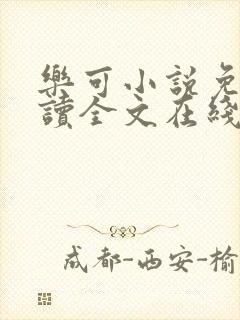 樂可小説免
讀全文在綫
成都-西安-榆